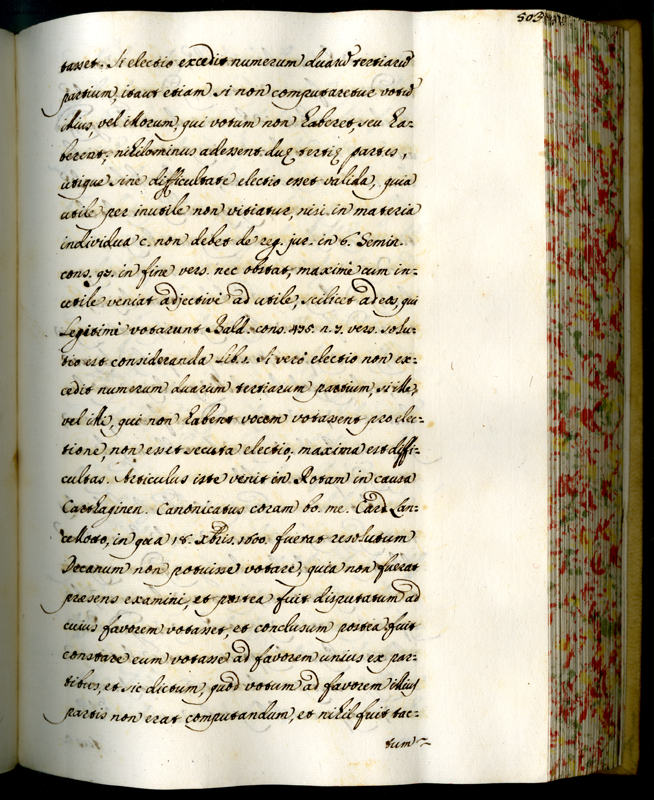 503
tasset. Si electio excedit numerum duarũ tertiarũ
partium, itaut etiam si non computaretur votũ
illius, vel illorum, qui votum non haberet, seu ha-
berent, nihilominus adessent duę tertię partes,
utique sine difficultate electio esset valida, quia
utile per inutile non vitiatur, nisi in materia
individua c. non debet de reg. jur. in 6. Gemin.
cons. 93. in fine vers. nec obstat, maxime cum in-
utile veniat adjective ad utile, scilicet ad eos, qui
legitime votarunt Bald. cons. 435. n. 7. vers. solu-
tio est consideranda lib. 1. Si vero electio non ex-
cedit numerum duarum tertiarum partium, si ille,
vel illi, qui non habent vocem votassent pro elec-
tione, non esset secuta electio. maxima est diffi-
cultas. Articulus iste venit in Rotam in causa
Carthaginen. Canonicatus coram bo. me. Card. Lan-
cellotto, in qua 18. Xbris. 1600. fuerat resolutum
Decanum non potuisse votare, quia non fuerat
præsens examini, et postea fuit disputatum ad
cuius favorem votasset, et conclusum postea fuit
constare eum votasse ad favorem unius ex par-
tibus, et sic dictum, quòd votum ad favorem illius
partis non erat computandum, et nihil fuit tac-
tum